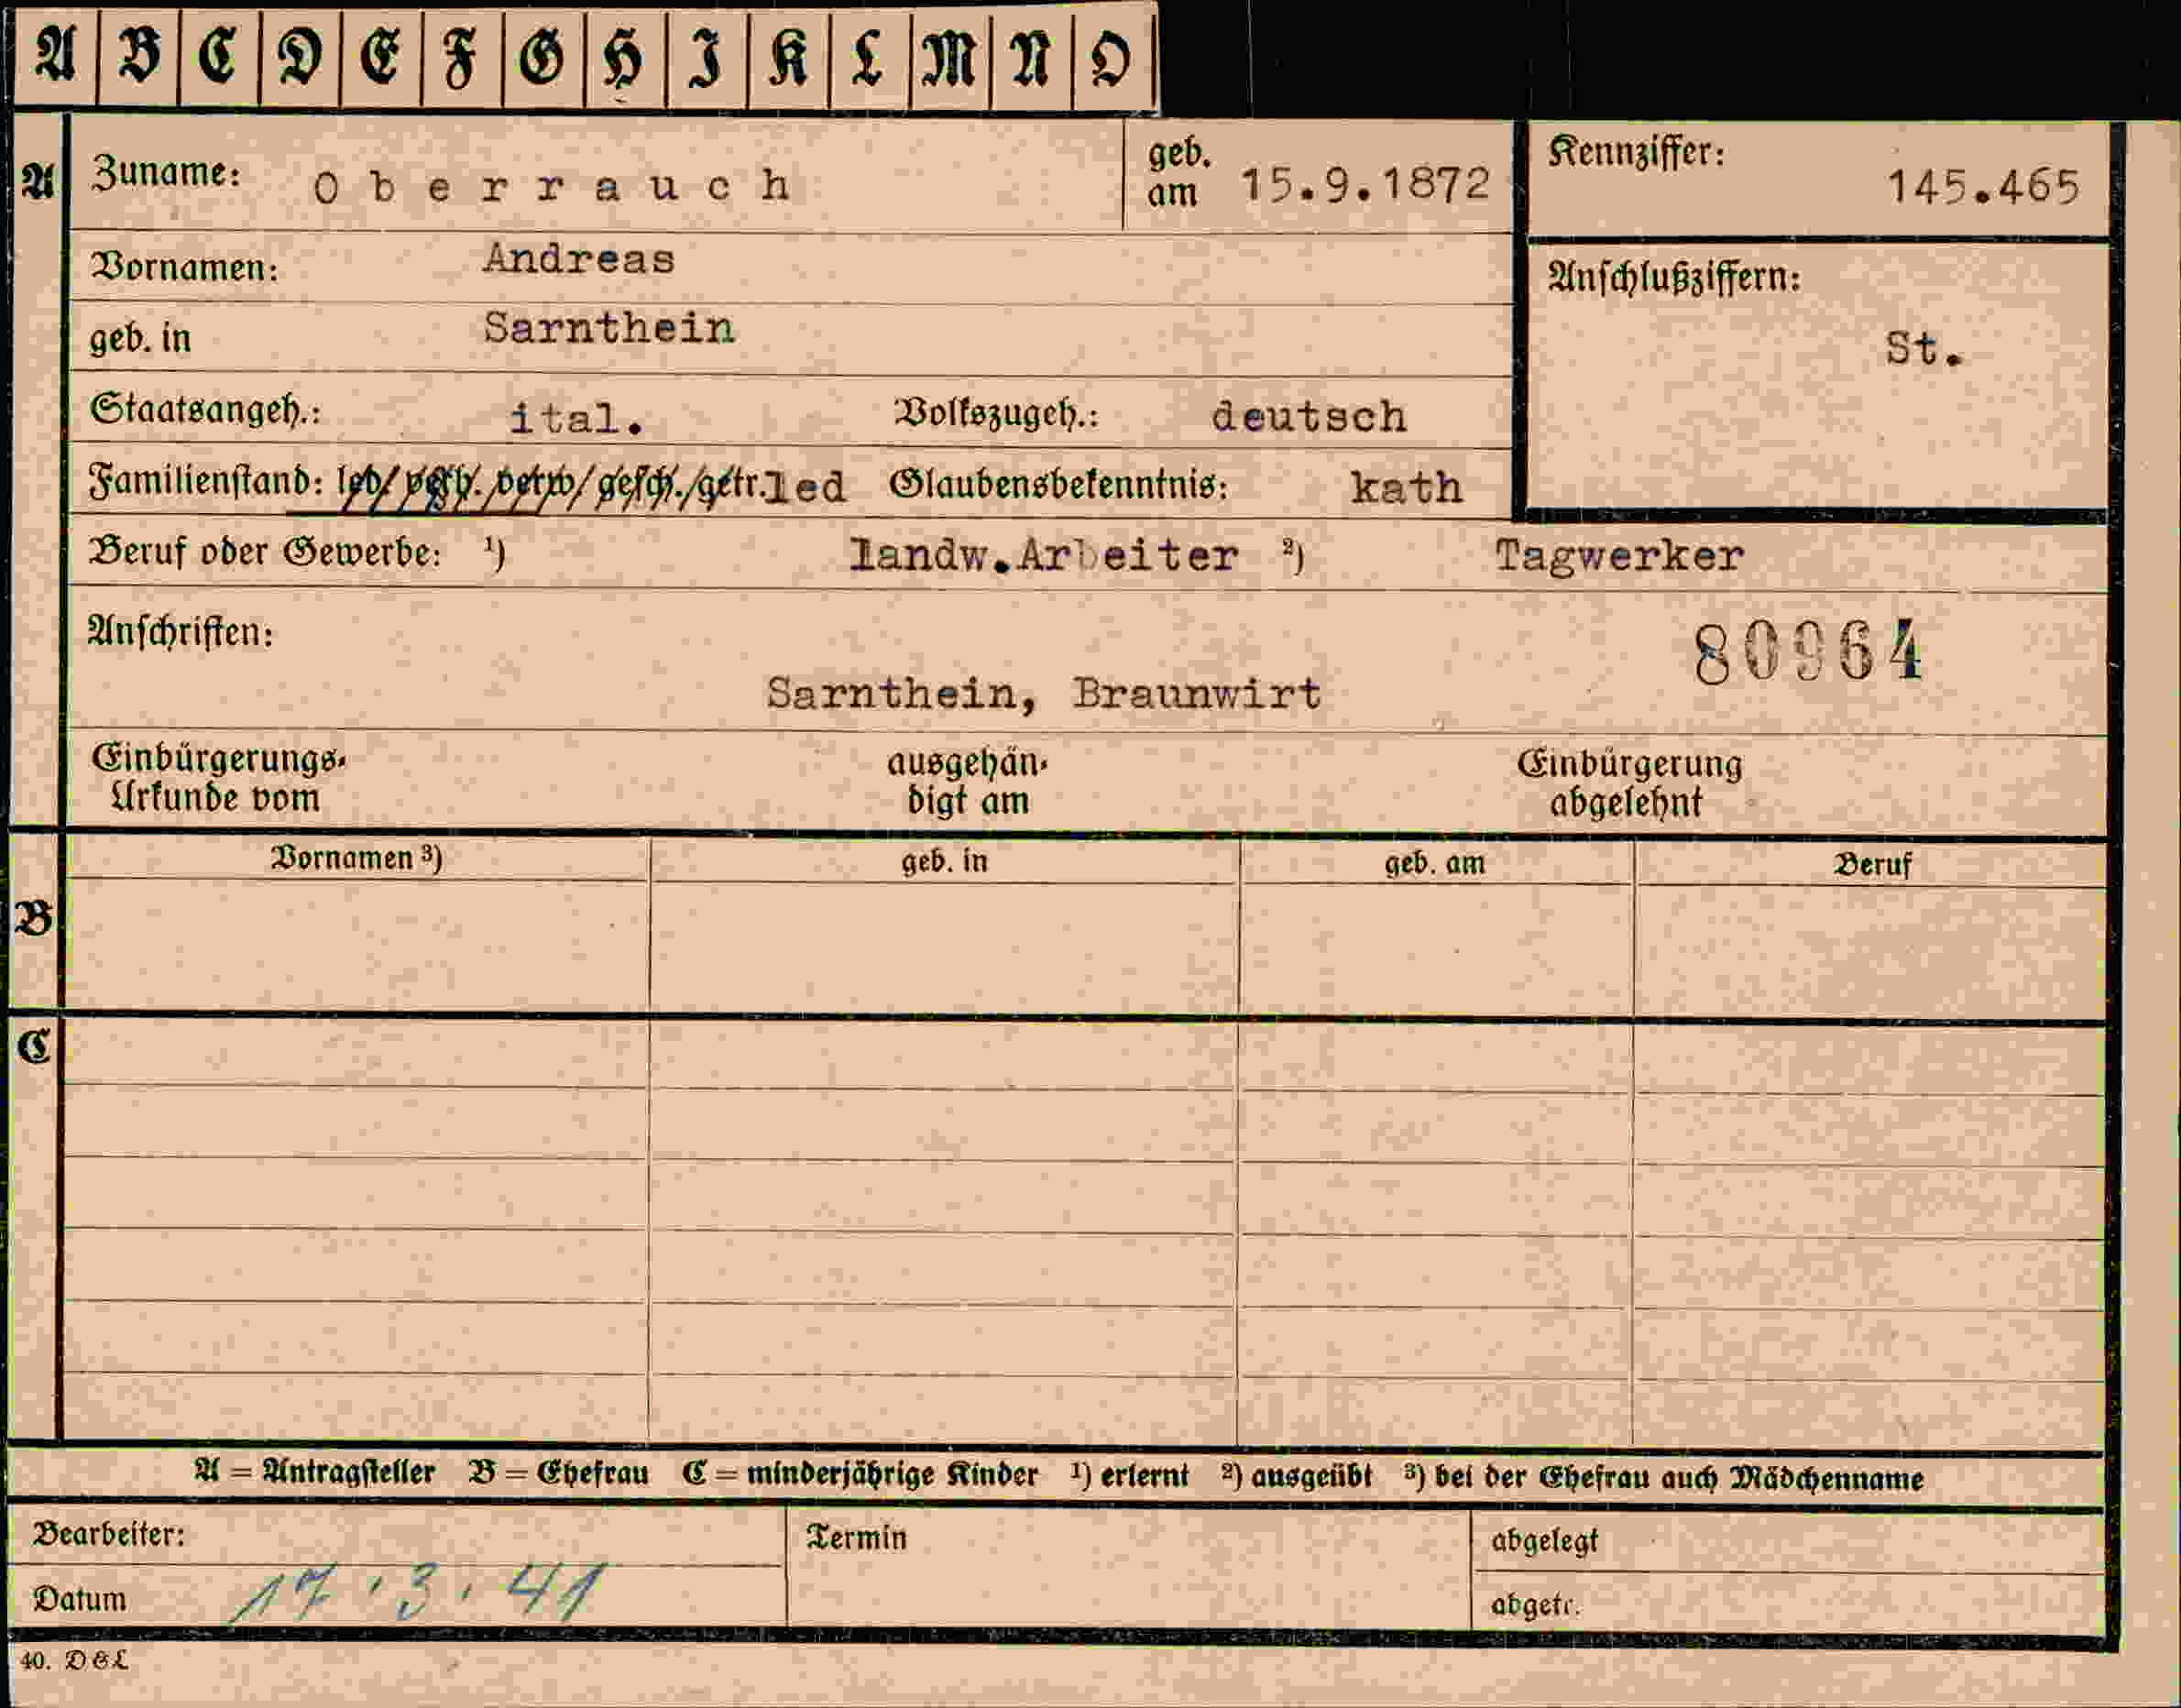 A B C D E F G H I K L M N O
A Zuname: Oberrauch geb. am 15.9.1872 Kennziffer: 145.465
Vornamen: Andreas Anschlußziffern:
geb. in Sarnthein St.
Staatsangeh.: ital. Volkszugeh.: deutsch
Familienstand: led/verh./verw/gesch./getr. led Glaubensbekenntnis: kath
Beruf oder Gewerbe: ¹) landw.Arbeiter ²) Tagwerker
Anschriften: 80964
Sarnthein, Braunwirt
Einbürgerungs- ausgehän- Einbürgerung
Urkunde vom digt am abgelehnt
Vornamen ³) geb. in geb. am Beruf
B
C
A = Antragsteller B = Ehefrau C = minderjährige Kinder ¹) erlernt ²) ausgeübt ³) bei der Ehefrau auch Mädchenname
Bearbeiter: Termin abgelegt
Datum 17.3.41 abgetr.
40. D&L